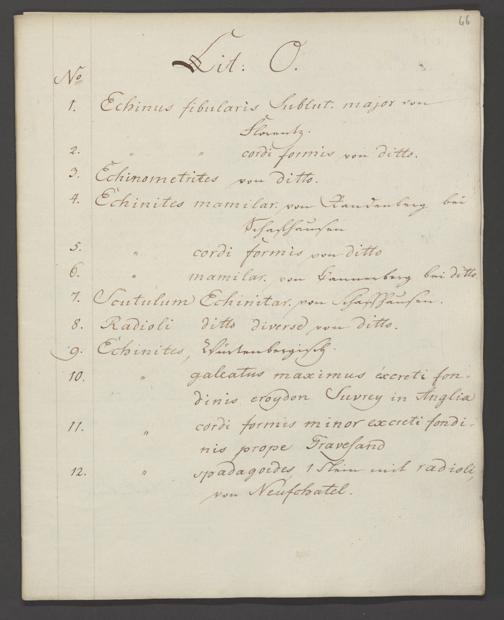 66
Lit: O.
No
1. Echinus fibularis Sublut. major von
Florentz.
2. " " cordi formis von ditto.
3. Echinometrites von ditto.
4. Echinites mamilar. von Randenberg bei
Schaffhausen
5. " cordi formis von ditto
6. " mamilar. von Lannenberg bei ditto
7. Scutulum Echinitar. von Schaffhausen.
8. Radioli ditto diverse von ditto.
9. Echinites, Würtenbergisch.
10. " galeatus maximus excreti fon-
dinis croydon Suvrey in Anglia
11. " cordi formis minor excreti fondi-
nis prope Gravesand
12. " spadagoides 1 Stein mit radioli,
von Neufchatel.